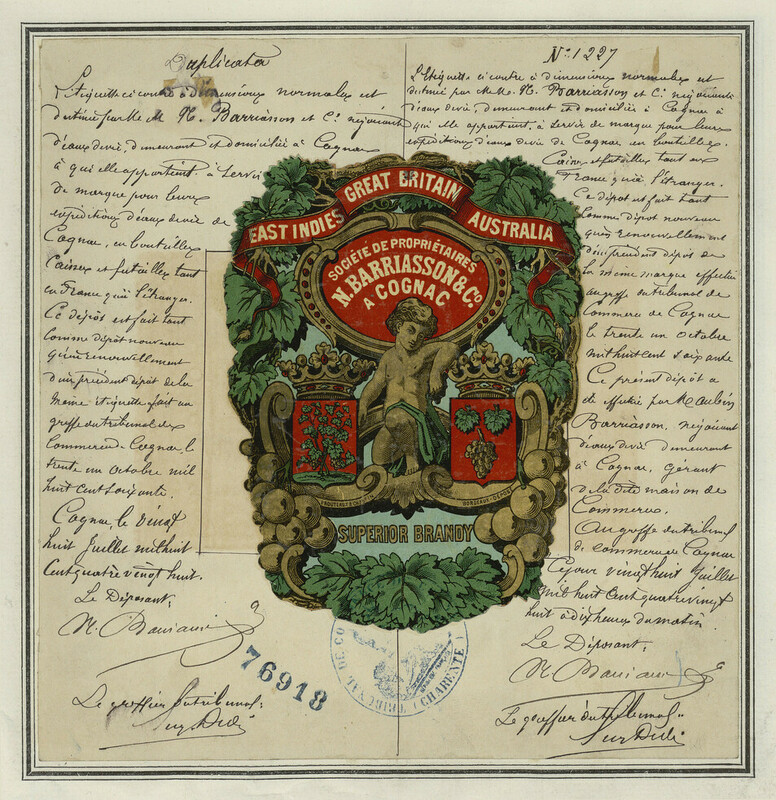 Duplicata
L'étiquette ci contre à dimensions normales est
destinée par MM. N. Barriasson et Cie négociants
d'eaux de vie, demeurant et domiciliés à Cognac
à qui elle appartient. à servir
de marque pour leurs
expéditions d'eaux de vie de
Cognac, en bouteilles
Caisses et futailles tant
en France qu'à l'étranger.
Ce dépôt est fait tant
comme dépôt nouveau
qu'en renouvellement
d'un précédent dépôt de la
même étiquette fait au
greffe du tribunal de
Commerce Cognac le
trente un Octobre mil
huit cent soixante.
Cognac le vingt
huit Juillet mil huit
Cent quatre vingt huit.
Le Déposant,
N. Barriasson
Le greffier du tribunal
N° 1227
L'Etiquette ci contre à dimensions normales est
destinée par MM. N. Barriasson et Cie négociants
d'eaux de vie, demeurant et domiciliés à Cognac à
qui elle appartient, à servir de marque pour leurs
expéditions d'eaux de vie de Cognac en bouteilles.
Caisses et futailles tant en
France qu'à l'étranger.
Ce dépôt est fait tant
comme dépôt nouveau
qu'en renouvellement
d'un précédent dépôt de
la même marque effectué
au greffe du tribunal de
Commerce de Cognac
le trente un octobre
mil huit cent soixante
Ce présent dépôt a
été effectué par M. Aubin
Barriasson, négociant
d'eaux de vie demeurant
à Cognac. Gérant
de la dite maison de
Commerce.
Au greffe du tribunal
de commerce de Cognac
Ce jour vingt huit Juillet
mil huit cent quatre vingt
huit à dix heures du matin.
Le Déposant.
N. Barriasson
Le greffier du tribunal
EAST INDIES GREAT BRITAIN AUSTRALIA
SOCIÉTÉ DE PROPRIÉTAIRES
N. BARRIASSON & Co.
A COGNAC
BORDEAUX-DÉPOSÉ
SUPERIOR BRANDY
76918
(CHARENTE)